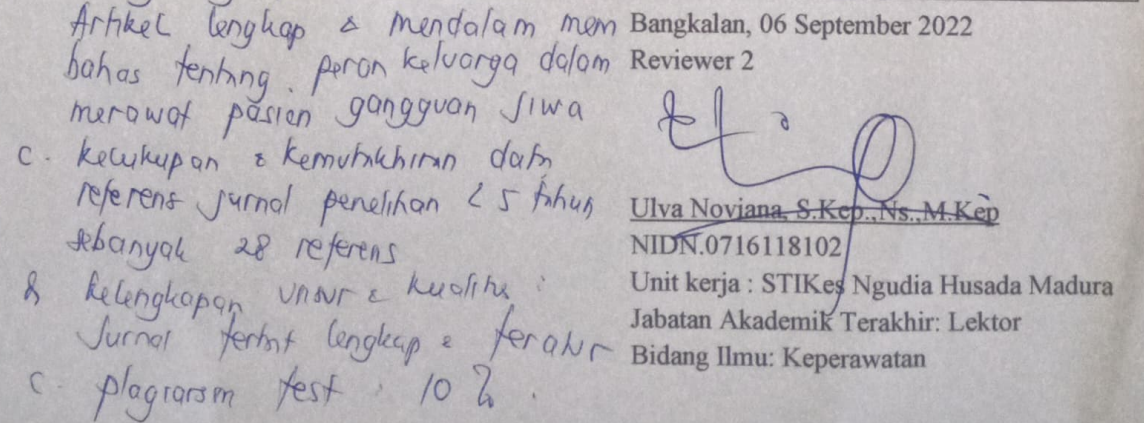 Artikel lengkap & mendalam mem
bahas tentang. peran keluarga dalam
merawat pasien gangguan jiwa
c. kecukupan & kemutakhiran data
referens jurnal penelitian < 5 tahun
sebanyak 28 referens
& kelengkapan unsur & kualitas :
Jurnal terbit lengkap & teratur
c. plagiarsm test : 10 %.
Bangkalan, 06 September 2022
Reviewer 2
Ulva Noviana, S.Kep.,Ns.,M.Kep
NIDN.0716118102
Unit kerja : STIKes Ngudia Husada Madura
Jabatan Akademik Terakhir: Lektor
Bidang Ilmu: Keperawatan